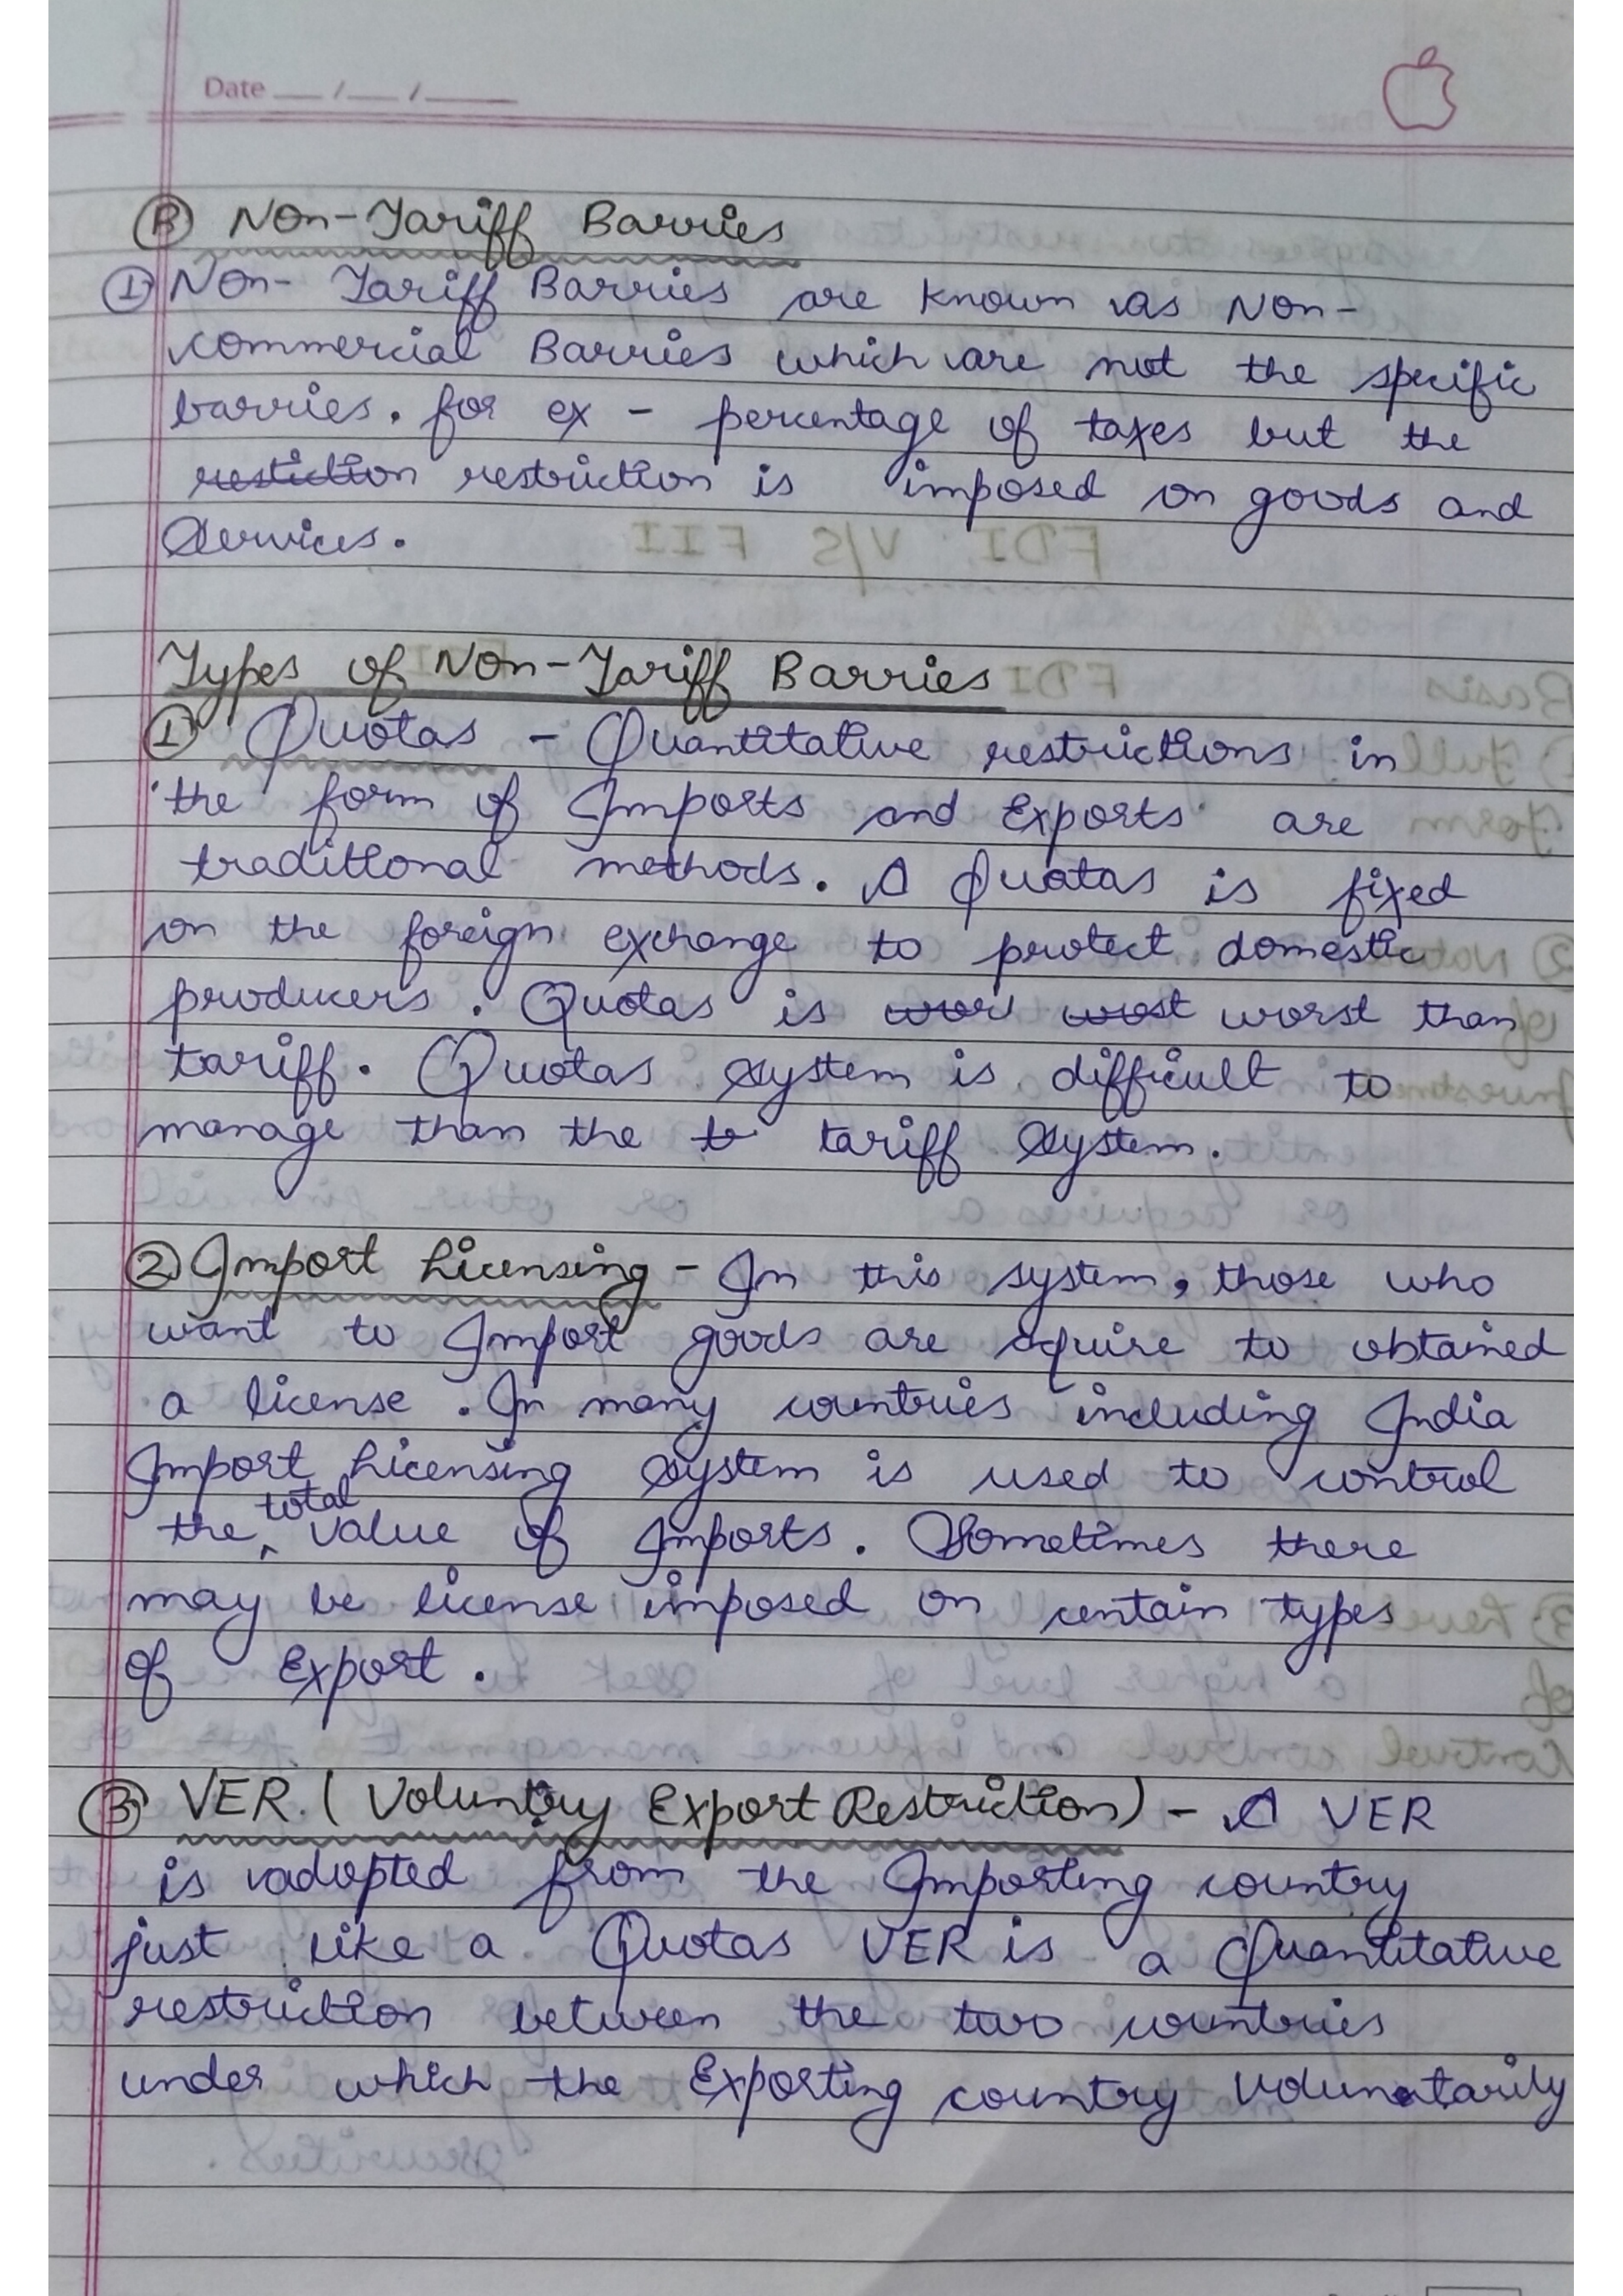 Date __/__/____
(B) Non-Tariff Barries
(1) Non-Tariff Barries are known as Non-
commercial Barries which are not the specific
barries. for ex - percentage of taxes but the
restiction restriction is imposed on goods and
Services.
Types of Non-Tariff Barries
(1) Quotas - Quantitative restrictions in
the form of Imports and Exports are
traditional methods. A Quotas is fixed
on the foreign exchange to protect domestic
producers. Quotas is wor wost worst than
tariff. Quotas system is difficult to
manage than the tariff system.
(2) Import Licensing - In this system, those who
want to Import goods are aquire to obtained
a license. In many countries including India
Import Licensing system is used to control
the total value of Imports. Sometimes there
may be license imposed on certain types
of Export.
(3) VER (Voluntry Export Restriction) - A VER
is adopted from the Importing country
just like a Quotas VER is a Quantitative
restriction between the two countries
under which the Exporting country Voluntarily